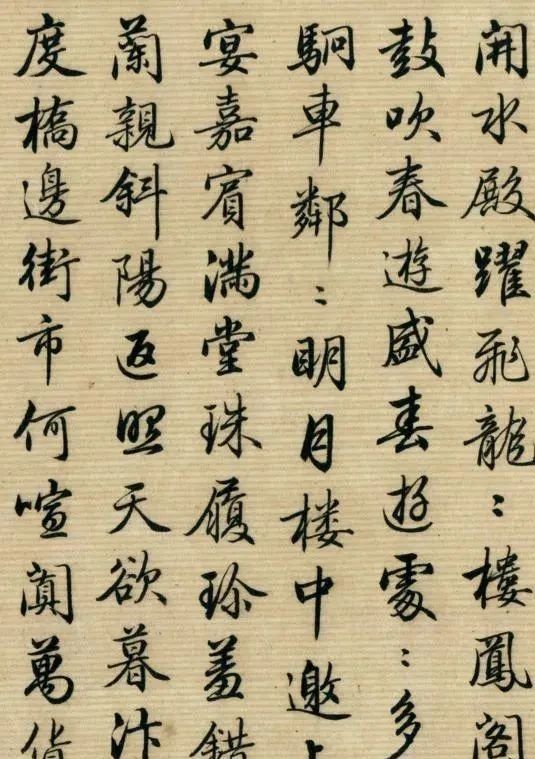 開水殿躍飛龍〻樓鳳閣
鼓吹春遊盛春遊處〻多
駉車鄰〻明月楼中邀上
宴嘉賓滿堂珠履珍羞錯
蘭親斜陽返照天欲暮汴
度橋邊街市何喧闐萬貨